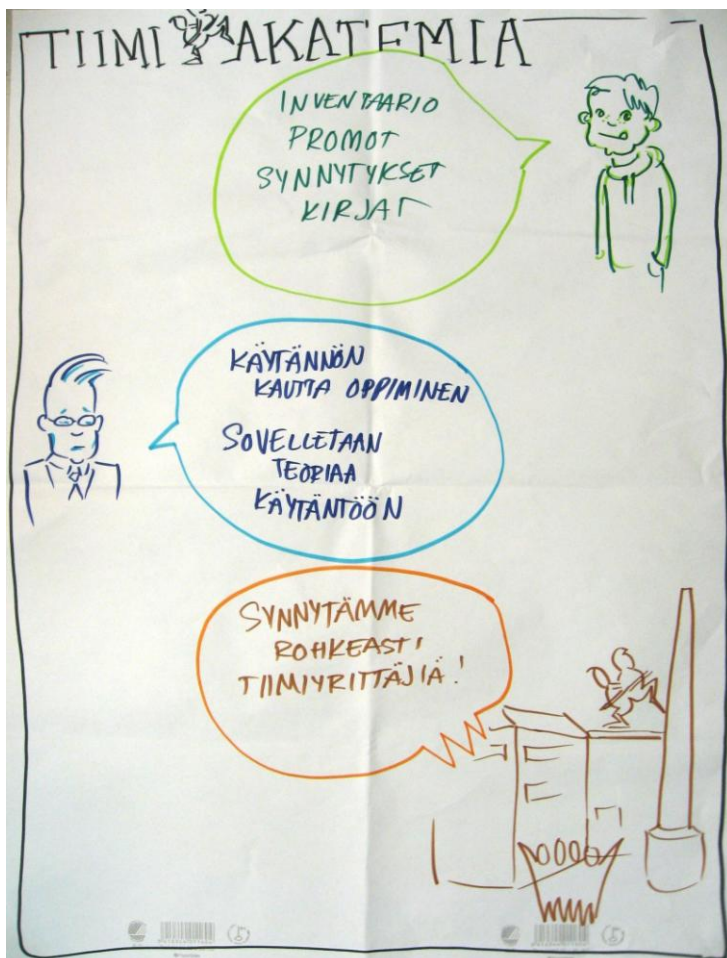 TIIMI AKATEMIA
INVENTAARIO
PROMOT
SYNNYTYKSET
KIRJAT
KÄYTÄNNÖN
KAUTTA OPPIMINEN
SOVELLETAAN
TEORIAA
KÄYTÄNTÖÖN
SYNNYTÄMME
ROHKEASTI
TIIMIYRITTÄJIÄ!